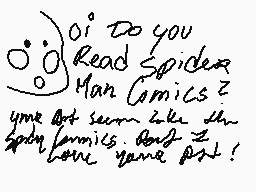 oi Do you
Read Spider
Man Comics?
your Art seem like the
spidy Commics. But I
Love your Art!